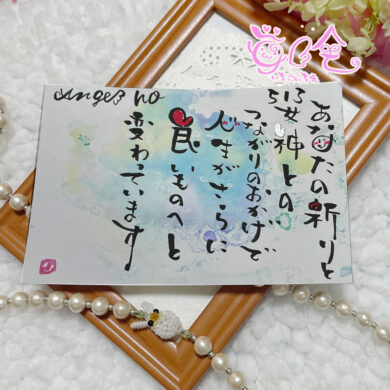 Angel no
513
あなたの祈りと
女神との
つながりのおかげで
人生がさらに
良いものへと
変わっています